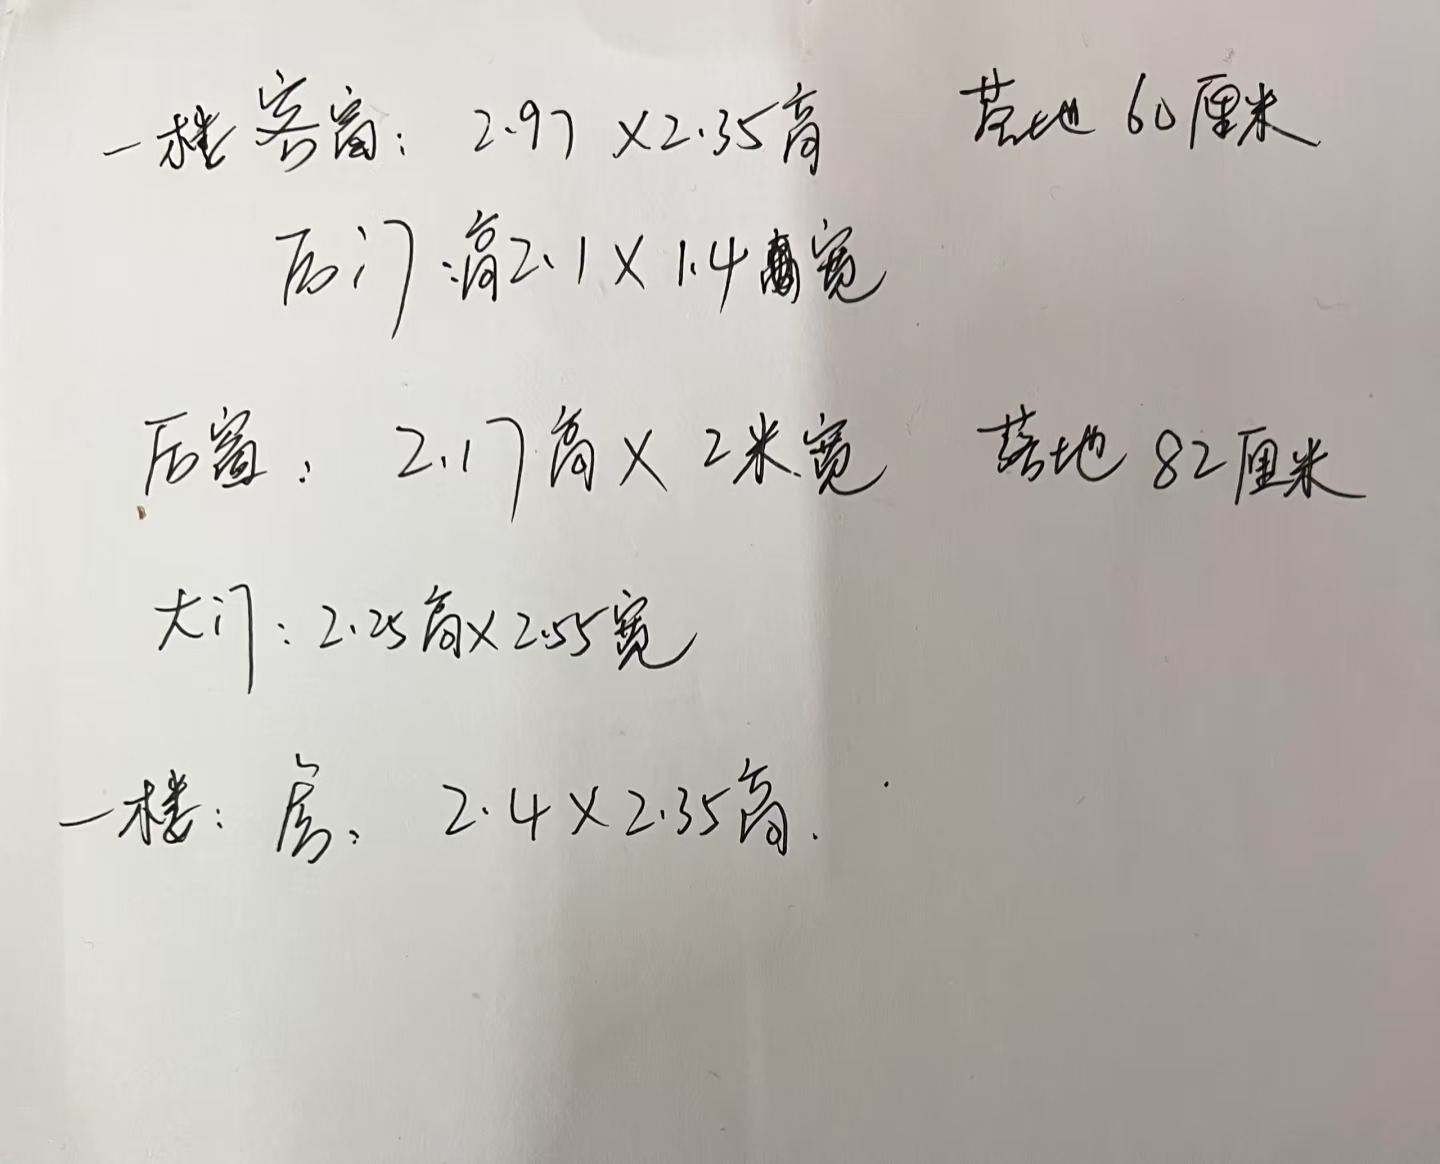 一楼客窗：2.97×2.35高 落地60厘米
后门：高2.1×1.4宽
后窗：2.17高×2米宽 落地82厘米
大门：2.25高×2.55宽
一楼：房：2.4×2.35高.